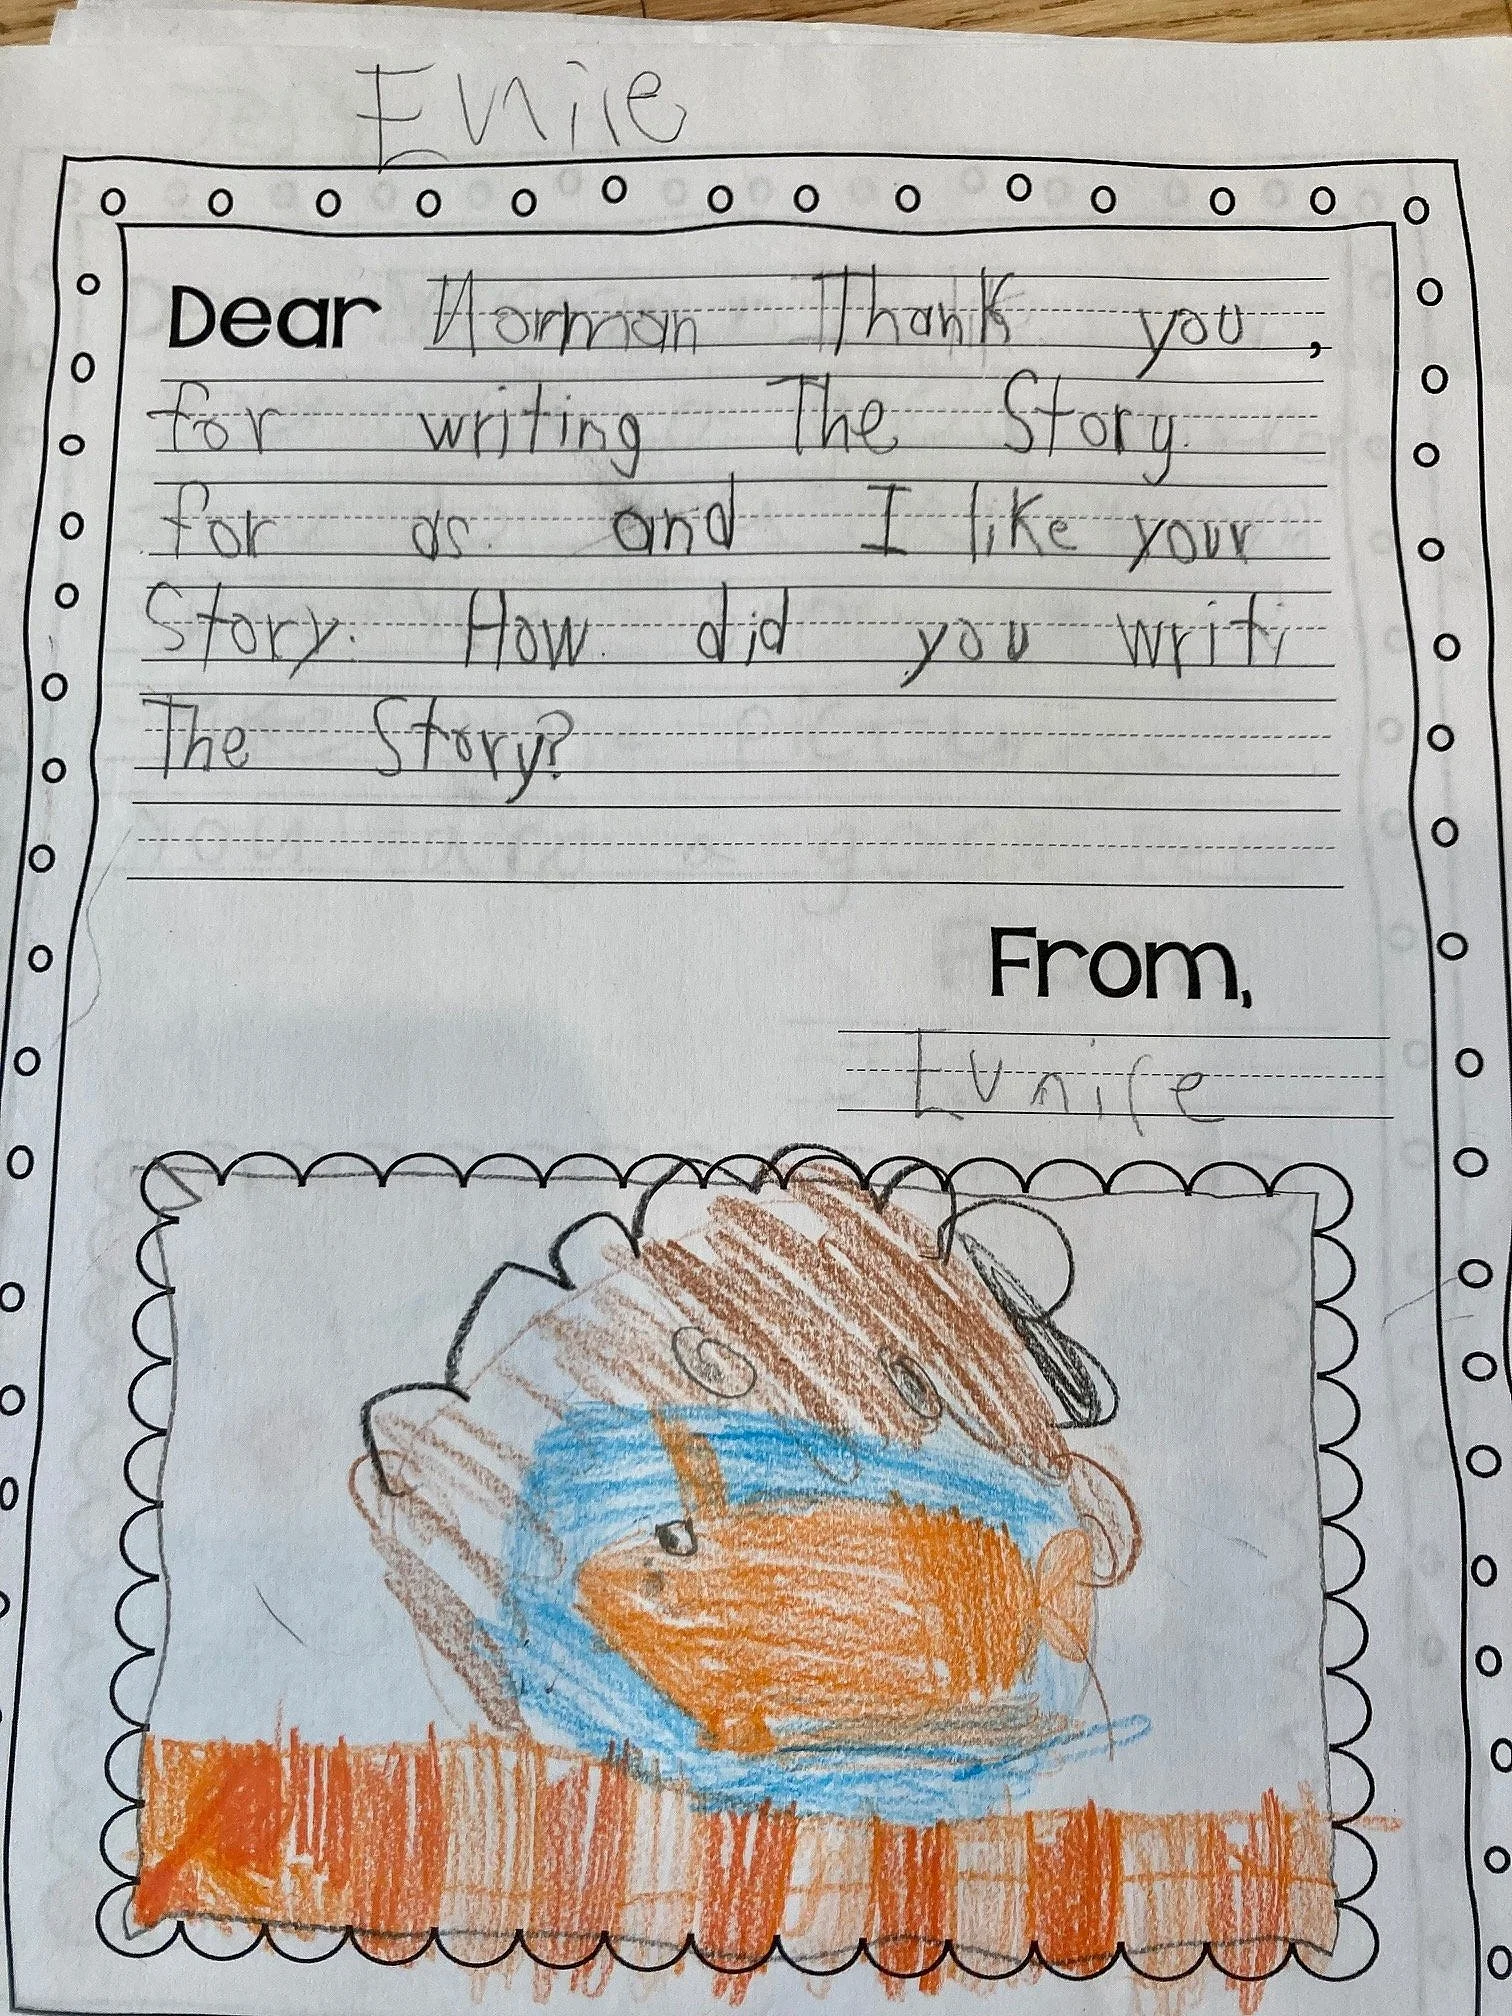 Eunice
Dear Norman Thank you,
for writing The Story.
for as. and I like your
Story. How. did you writi
The Story?
From,
Eunice